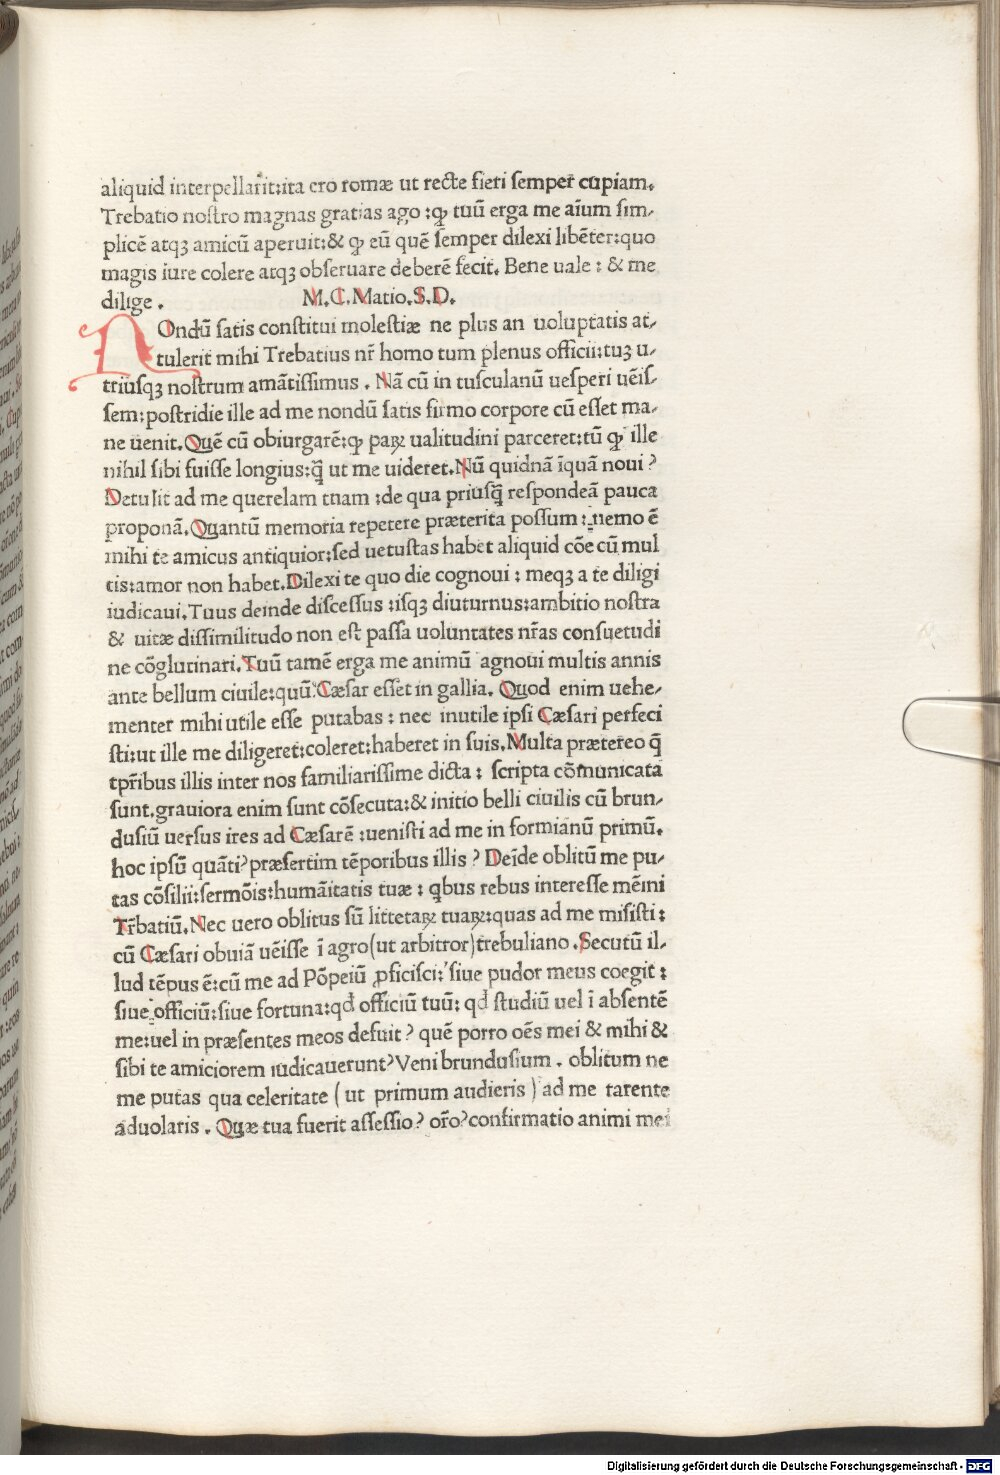 aliquid interpellarīt:ita ero romæ ut recte fieri ſemper cupiam.
Trebatio noſtro magnas gratias ago :ꝙ tuū erga me aīum ſim-
plicē atqꝫ amicū aperuit:& ꝙ eū quē ſemper dilexi libēter:quo
magis iure colere atqꝫ obſeruare deberē fecit. Bene uale : & me
dilige .
M.C.Matio.S.D.
NOndū ſatis conſtitui moleſtiæ ne plus an uoluptatis at-
tulerit mihi Trebatius nr̄ homo tum plenus officii:tuꝫ u-
triuſqꝫ noſtrum amātiſſimus . Nā cū in tuſculanū ueſperi uēiſ-
ſem:poſtridie ille ad me nondū ſatis firmo corpore cū eſſet ma-
ne uenit. Quē cū obiurgarē:ꝙ paꝝ ualitudini parceret:tū ꝙ ille
nihil ſibi fuiſſe longius:q̄ ut me uideret. Nū quidnā īquā noui ?
Detulit ad me querelam tuam :de qua priuſq̄ reſpondeā pauca
proponā. Quantū memoria repetere præterita poſſum : nemo ē
mihi te amicus antiquior:ſed uetuſtas habet aliquid cōe cū mul
tis:amor non habet. Dilexi te quo die cognoui : meqꝫ a te diligi
iudicaui. Tuus deinde diſceſſus :iſqꝫ diuturnus:ambitio noſtra
& uitæ diſſimilitudo non eſt paſſa uoluntates nr̄as conſuetudi
ne cōglutinari. Tuū tamē erga me animū agnoui multis annis
ante bellum ciuile:quū Cæſar eſſet in gallia. Quod enim uehe-
menter mihi utile eſſe putabas : nec inutile ipſi Cæſari perfeci
ſti:ut ille me diligeret:coleret:haberet in ſuis. Multa prætereo q̄
tpr̄ibus illis inter nos familiariſſime dicta : ſcripta cōmunicata
ſunt. grauiora enim ſunt cōſecuta:& initio belli ciuilis cū brun-
duſiū uerſus ires ad Cæſarē :ueniſti ad me in formianū primū.
hoc ipſū quāti? præſertim tēporibus illis ? Deīde oblitū me pu-
tas cōſilii:ſermōis:humāitatis tuæ : qbus rebus intereſſe mēini
Tr̄batiū. Nec uero oblitus ſū littetaꝝ tuaꝝ:quas ad me miſiſti :
cū Cæſari obuiā uēiſſe ī agro (ut arbitror) trebuliano . Secutū il-
lud tēpus ē:cū me ad Pōpeiū ꝓficiſci: ſiue pudor meus coegit :
ſiue officiū:ſiue fortuna:qd officiū tuū: qd ſtudiū uel ī abſentē
me:uel in præſentes meos defuit ? quē porro oēs mei & mihi &
ſibi te amiciorem iudicauerunt? Veni brunduſium . oblitum ne
me putas qua celeritate ( ut primum audieris ) ad me tarente
aduolaris . Quæ tua fuerit aſſeſſio ? or̄o? confirmatio animi mei
Digitalisierung gefördert durch die Deutsche Forschungsgemeinschaft - DFG